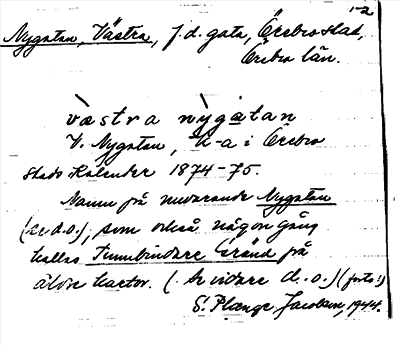 1-2
Nygatan, Västra, f.d. gata, Örebro stad,
Örebro län.
västra nygatan
V. Nygatan, i Örebro
stads Kalender 1874-75.
Namn på nuvarande Nygatan
(se d.o.), som också någon gång
kallas Tunnbindare Gränd på
äldre kartor. (Se vidare d.o.) (forts!)
S. Plænge Jacobson, 1944.